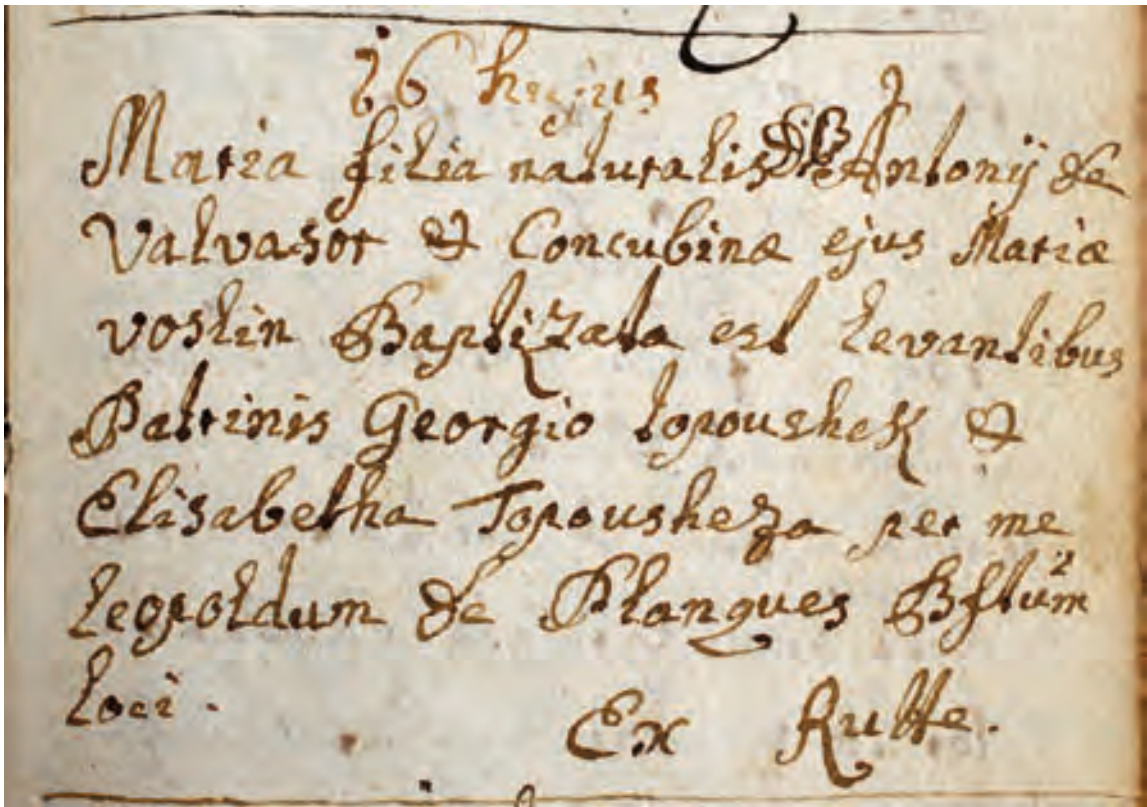 26 hujus
Maria filia naturalis Antonij de
Valvasor & Concubinæ ejus Mariæ
voskin Baptizata est levantibus
Patrinis Georgio topoushek &
Elisabetha Topousheza per me
Leopoldum de Planques
loci.
Ex Rutte.